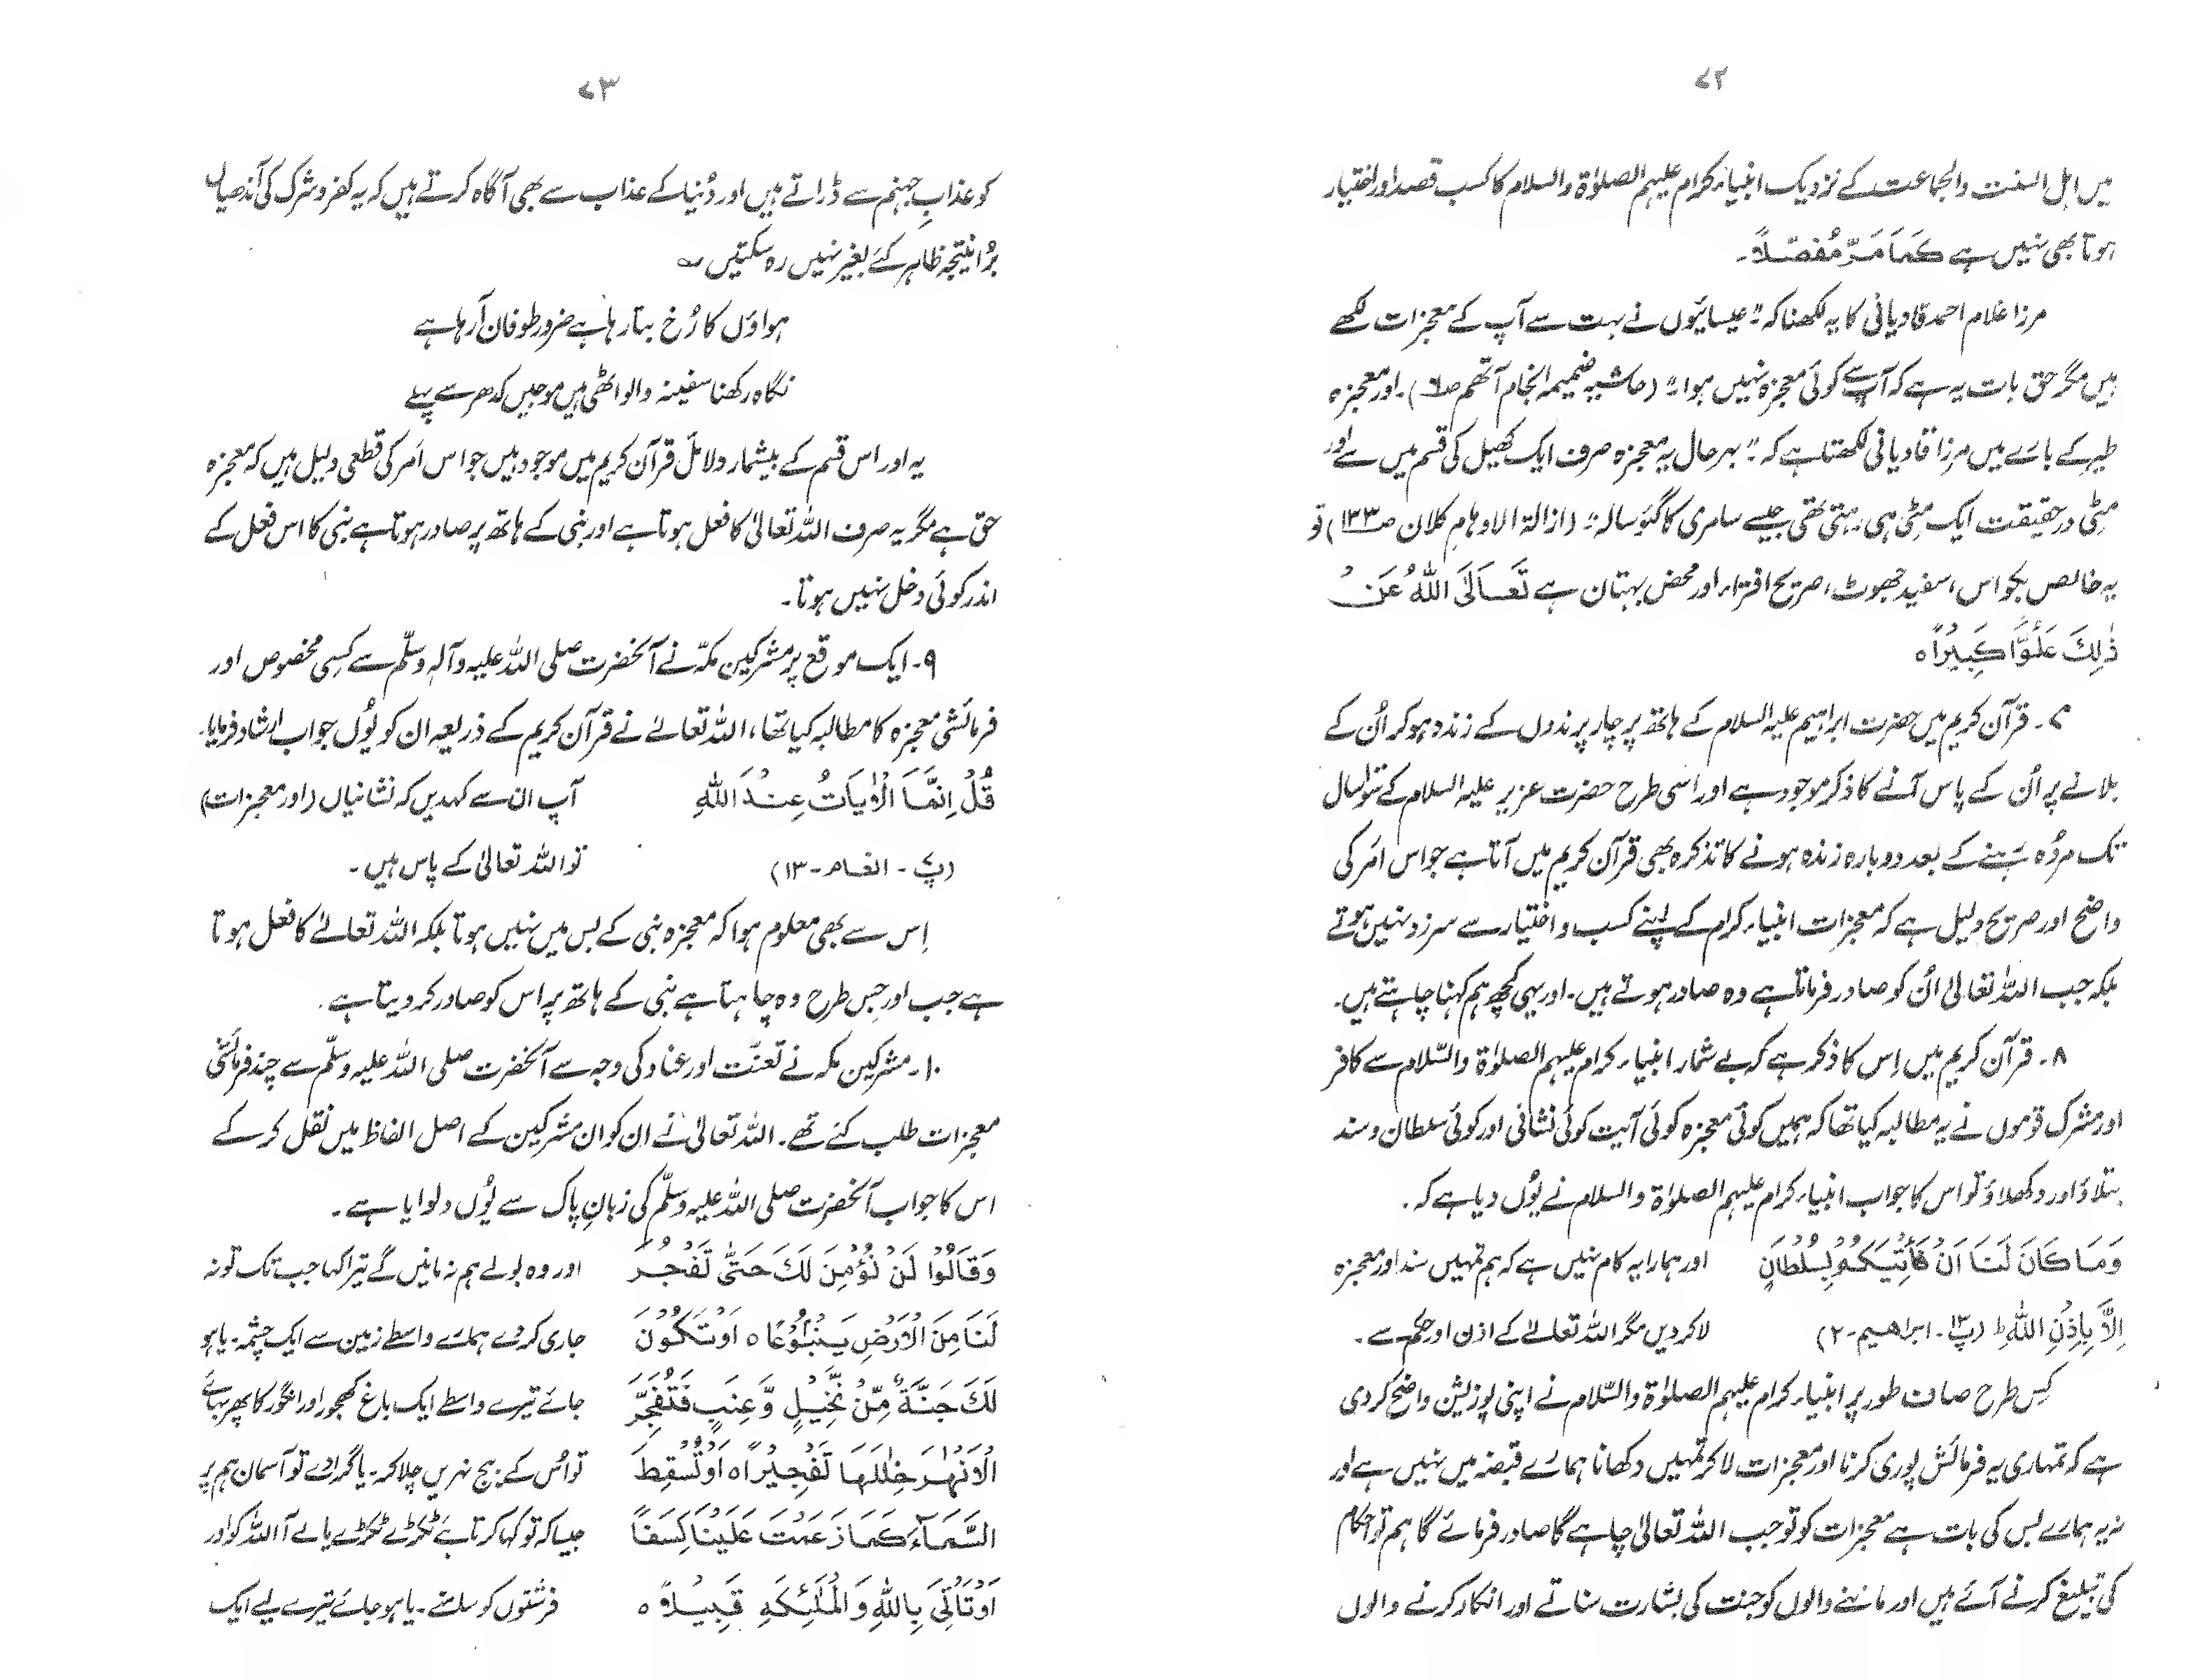 ۷۲
میں اہل السنت والجماعت کے نزدیک انبیاء کرام علیہم الصلوٰۃ والسلام کا کسب قصد اور اختیار
ہوتا بھی نہیں ہے کَمَا مَرَّ مُفَصَّلاً۔
مرزا غلام احمد قادیانی کا یہ لکھنا کہ "عیسائیوں نے بہت سے آپ کے معجزات لکھے
ہیں مگر حق بات یہ ہے کہ آپ سے کوئی معجزہ نہیں ہوا" (حاشیہ ضمیمہ انجام آتھم ص۶)۔ اور معجزہ
طیر کے بارے میں مرزا قادیانی لکھتا ہے کہ "بہر حال یہ معجزہ صرف ایک کھیل کی قسم میں سے اور
مٹی درحقیقت ایک مٹی ہی رہتی تھی جیسے سامری کا گئوسالہ" (ازالۃ الاوہام کلان ص۱۳۳) تو
یہ خالص بکواس، سفید جھوٹ، صریح افتراء اور محض بہتان ہے تَعَالَی اللہُ عَنْ
ذٰلِکَ عُلُوًّا کَبِیْرًا ہ
۷۔ قرآن کریم میں حضرت ابراہیم علیہ السلام کے ہاتھ پر چار پرندوں کے زندہ ہو کر اُن کے
بلانے پر اُن کے پاس آنے کا ذکر موجود ہے اور اسی طرح حضرت عزیر علیہ السلام کے سَو سال
تک مردہ رہنے کے بعد دوبارہ زندہ ہونے کا تذکرہ بھی قرآن کریم میں آتا ہے جو اس امر کی
واضح اور صریح دلیل ہے کہ معجزات انبیاء کرام کے اپنے کسب و اختیار سے سرزد نہیں ہوتے
بلکہ جب اللہ تعالیٰ اُن کو صادر فرماتا ہے وہ صادر ہوتے ہیں۔ اور یہی کچھ ہم کہنا چاہتے ہیں۔
۸۔ قرآن کریم میں اِس کا ذکر ہے کہ بے شمار انبیاء کرام علیہم الصلوٰۃ والسّلام سے کافر
اور مشرک قوموں نے یہ مطالبہ کیا تھا کہ ہمیں کوئی معجزہ کوئی آیت کوئی نشانی اور کوئی سلطان و سند
بتلاؤ اور دکھلاؤ تو اس کا جواب انبیاء کرام علیہم الصلوٰۃ والسلام نے یُوں دیا ہے کہ۔
وَمَا کَانَ لَنَا اَنْ نَّاْتِیَکُمْ بِسُلْطَانٍ اور ہمارا یہ کام نہیں ہے کہ ہم تمہیں سند اور معجزہ
اِلَّا بِاِذْنِ اللہِ ط (پ۱۳۔ ابراھیم۔۲) لا کر دیں مگر اللہ تعالےٰ کے اذن اور حکم سے۔
کِس طرح صاف طور پر انبیاء کرام علیہم الصلوٰۃ والسّلام نے اپنی پوزیشن واضح کر دی
ہے کہ تمہاری یہ فرمائش پوری کرنا اور معجزات لا کر تمہیں دکھانا ہمارے قبضہ میں نہیں ہے اور
نہ یہ ہمارے بس کی بات ہے معجزات کو تو جب اللہ تعالیٰ چاہے گا صادر فرمائے گا ہم تو احکام
کی تبلیغ کرنے آئے ہیں اور ماننے والوں کو جنت کی بشارت سناتے اور انکار کرنے والوں
۷۳
کو عذابِ جہنم سے ڈراتے ہیں اور دُنیا کے عذاب سے بھی آگاہ کرتے ہیں کہ یہ کفر و شرک کی آندھیاں
بُرا نتیجہ ظاہر کئے بغیر نہیں رہ سکتیں ؎
ہواؤں کا رُخ بتا رہا ہے ضرور طوفان آ رہا ہے
نگاہ رکھنا سفینہ والو اٹھی ہیں موجیں کدھر سے پہلے
یہ اور اس قسم کے بیشمار دلائل قرآن کریم میں موجود ہیں جو اس اَمر کی قطعی دلیل ہیں کہ معجزہ
حق ہے مگر یہ صرف اللہ تعالیٰ کا فعل ہوتا ہے اور نبی کے ہاتھ پر صادر ہوتا ہے نبی کا اس فعل کے
اندر کوئی دخل نہیں ہوتا۔
۹۔ ایک موقع پر مشرکین مکہّ نے آنحضرت صلی اللہ علیہ وآلہٖ وسلّم سے کِسی مخصوص اور
فرمائشی معجزہ کا مطالبہ کیا تھا، اللہ تعالےٰ نے قرآن کریم کے ذریعہ ان کو یُوں جواب ارشاد فرمایا۔
قُلْ اِنَّمَا الْاٰیَاتُ عِنْدَ اللہِ آپ ان سے کہدیں کہ نشانیاں (اور معجزات)
(پ۷۔ انعام۔۱۳) تو اللہ تعالیٰ کے پاس ہیں۔
اِس سے بھی معلوم ہوا کہ معجزہ نبی کے بس میں نہیں ہوتا بلکہ اللہ تعالےٰ کا فعل ہوتا
ہے جب اور جس طرح وہ چاہتا ہے نبی کے ہاتھ پر اس کو صادر کر دیتا ہے۔
۱۰۔ مشرکین مکہ نے تعنّت اور عناد کی وجہ سے آنحضرت صلی اللہ علیہ وسلّم سے چند فرمائشی
معجزات طلب کئے تھے۔ اللہ تعالیٰ نے ان کو ان مشرکین کے اصل الفاظ میں نقل کر کے
اس کا جواب آنحضرت صلی اللہ علیہ وسلّم کی زبانِ پاک سے یُوں دلوایا ہے۔
وَقَالُوْا لَنْ نُّؤْمِنَ لَکَ حَتّٰی تَفْجُرَ اور وہ بولے ہم نہ مانیں گے تیرا کہا جب تک تو نہ
لَنَا مِنَ الْاَرْضِ یَنْبُوْعًا ہ اَوْ تَکُوْنَ جاری کر دے ہمارے واسطے زمین سے ایک چشمہ۔ یا ہو
لَکَ جَنَّۃٌ مِّنْ نَّخِیْلٍ وَّعِنَبٍ فَتُفَجِّرَ جائے تیرے واسطے ایک باغ کھجور اور انگور کا پھر بہائے
الْاَنْھٰرَ خِلٰلَھَا تَفْجِیْرًا ہ اَوْ تُسْقِطَ تو اُس کے بیچ نہریں چلا کر۔ یا گرا دے تو آسمان ہم پر
السَّمَآءَ کَمَا زَعَمْتَ عَلَیْنَا کِسَفًا جیسا کہ تو کہا کرتا ہے ٹکڑے ٹکڑے یا لے آ اللہ کو اور
اَوْ تَاْتِیَ بِاللہِ وَالْمَلٰئِکَۃِ قَبِیْلًا ہ فرشتوں کو سامنے۔ یا ہو جائے تیرے لیے ایک